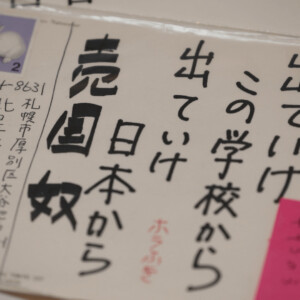 出ていけ
この学校から
出ていけ
日本から
売国奴
ホラふき
2
8631
札幌市厚別区大谷地